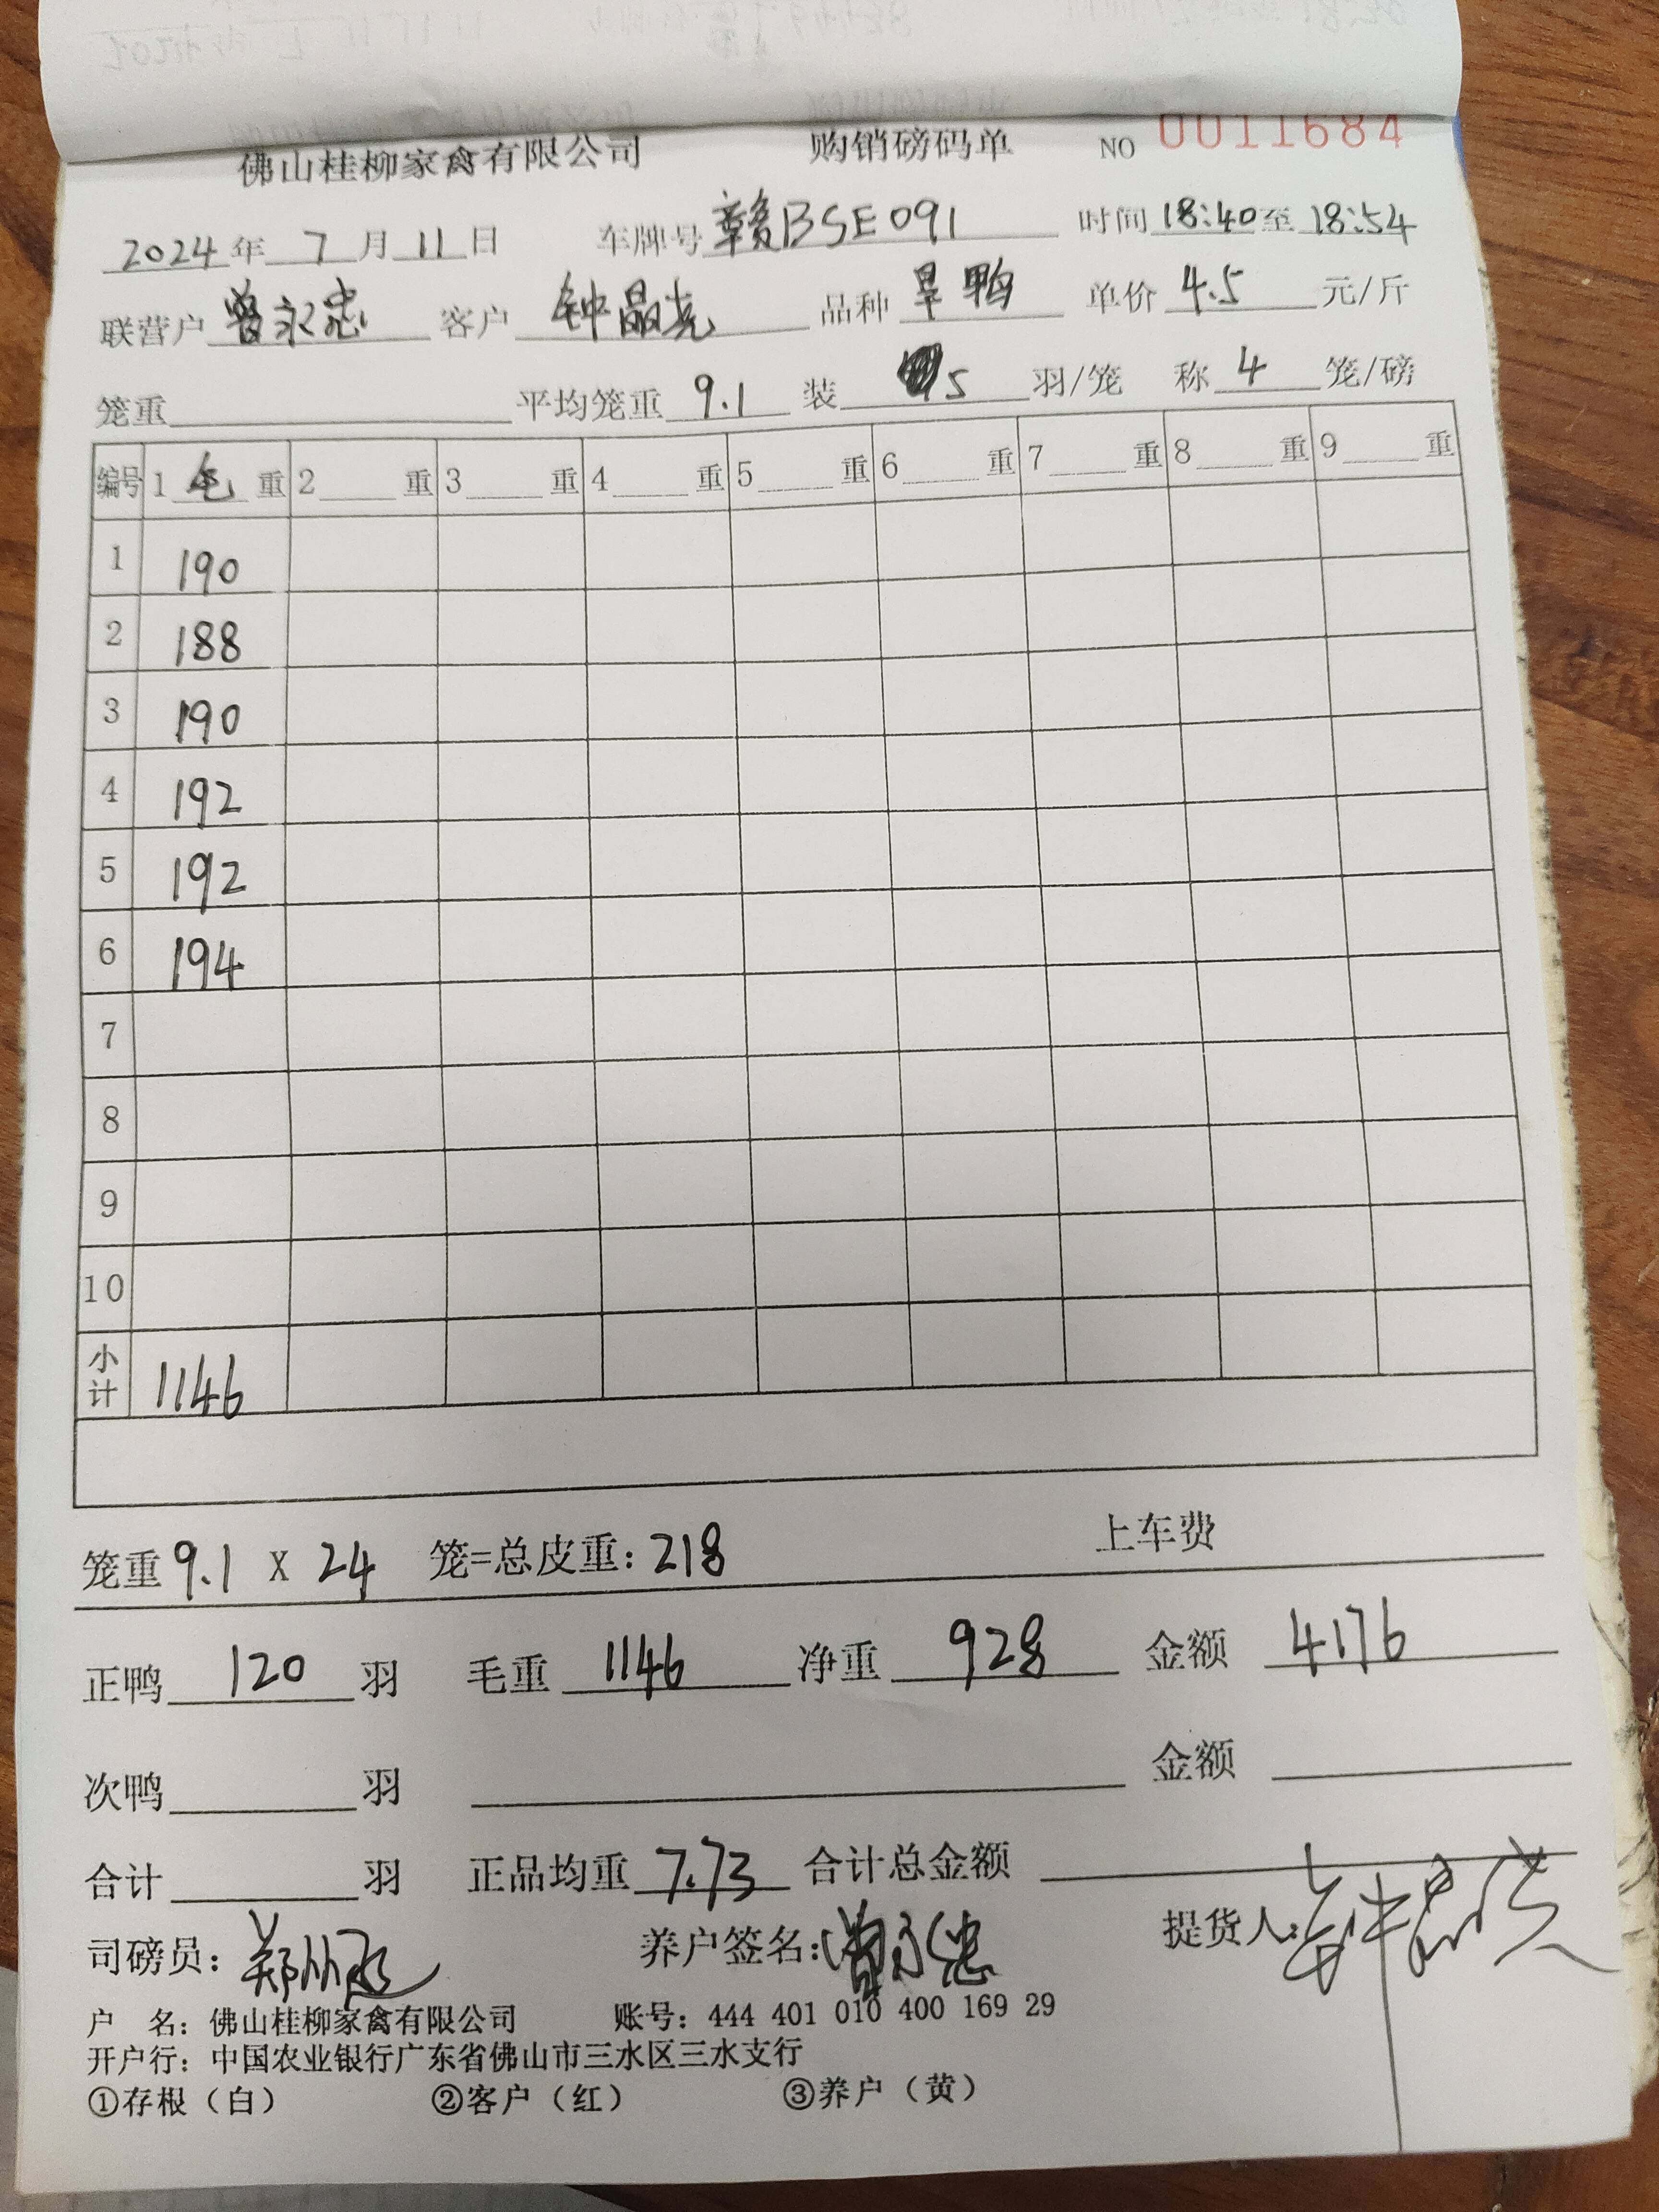 佛山桂柳家禽有限公司 购销磅码单 NO 0011684
2024年 7月 11日 车牌号 赣BSE091 时间 18:40 至 18:54
联营户 曾永忠 客户 钟晶亮 品种 旱鸭 单价 4.5 元/斤
笼重 平均笼重 9.1 装 5 羽/笼 称 4 笼/磅
编号 1 毛 重 2 重 3 重 4 重 5 重 6 重 7 重 8 重 9 重
1 190
2 188
3 190
4 192
5 192
6 194
7
8
9
10
小计 1146
笼重 9.1 X 24 笼=总皮重: 218 上车费
正鸭 120 羽 毛重 1146 净重 928 金额 4176
次鸭 羽 金额
合计 羽 正品均重 7.73 合计总金额
司磅员: 养户签名: 曾永忠 提货人:
户 名: 佛山桂柳家禽有限公司 账号: 444 401 010 400 169 29
开户行: 中国农业银行广东省佛山市三水区三水支行
①存根（白） ②客户（红） ③养户（黄）